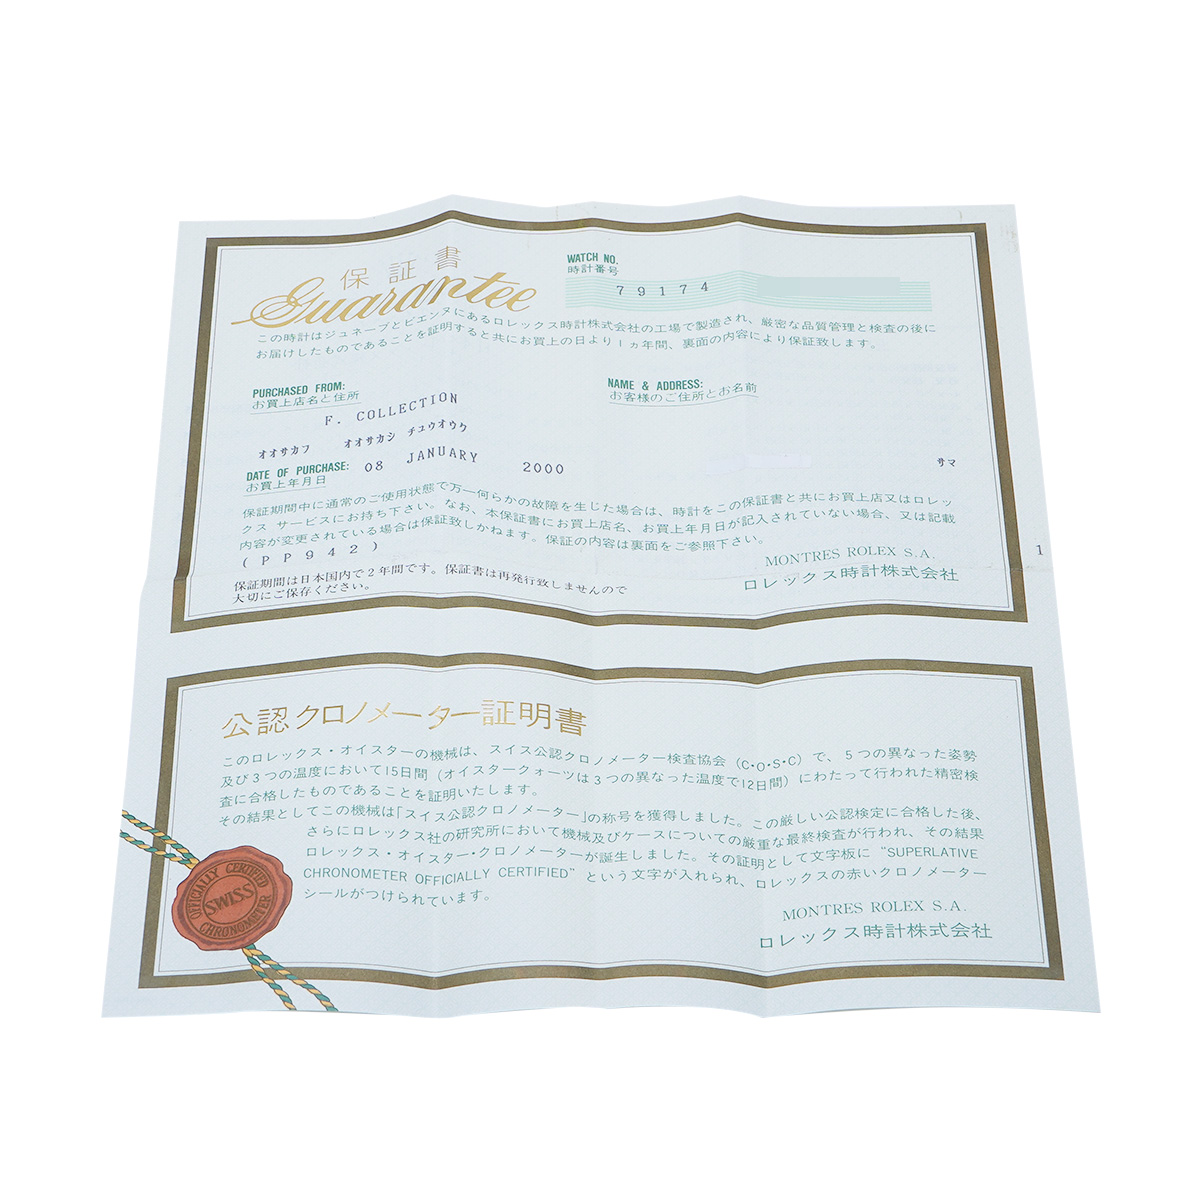 保証書
Guarantee
WATCH NO.
時計番号
79174
この時計はジュネーブとビエンヌにあるロレックス時計株式会社の工場で製造され、厳密な品質管理と検査の後に
お届けしたものであることを証明すると共にお買上の日より1ヵ年間、裏面の内容により保証致します。
PURCHASED FROM:
お買上店名と住所
F. COLLECTION
オオサカフ オオサカシ チユウオウク
NAME & ADDRESS:
お客様のご住所とお名前
サマ
DATE OF PURCHASE: 08 JANUARY 2000
お買上年月日
保証期間中に通常のご使用状態で万一何らかの故障を生じた場合は、時計をこの保証書と共にお買上店又はロレッ
クス サービスにお持ち下さい。なお、本保証書にお買上店名、お買上年月日が記入されていない場合、又は記載
内容が変更されている場合は保証致しかねます。保証の内容は裏面をご参照下さい。
(PP942)
保証期間は日本国内で2年間です。保証書は再発行致しませんので
大切にご保存ください。
MONTRES ROLEX S.A.
ロレックス時計株式会社
1
公認クロノメーター証明書
このロレックス・オイスターの機械は、スイス公認クロノメーター検査協会(C・O・S・C)で、5つの異なった姿勢
及び3つの温度において15日間(オイスタークォーツは3つの異なった温度で12日間)にわたって行われた精密検
査に合格したものであることを証明いたします。
その結果としてこの機械は「スイス公認クロノメーター」の称号を獲得しました。この厳しい公認検定に合格した後、
さらにロレックス社の研究所において機械及びケースについての厳重な最終検査が行われ、その結果
ロレックス・オイスター・クロノメーターが誕生しました。その証明として文字板に "SUPERLATIVE
CHRONOMETER OFFICIALLY CERTIFIED" という文字が入れられ、ロレックスの赤いクロノメーター
シールがつけられています。
MONTRES ROLEX S.A.
ロレックス時計株式会社
OFFICIALLY CERTIFIED
SWISS
CHRONOMETER